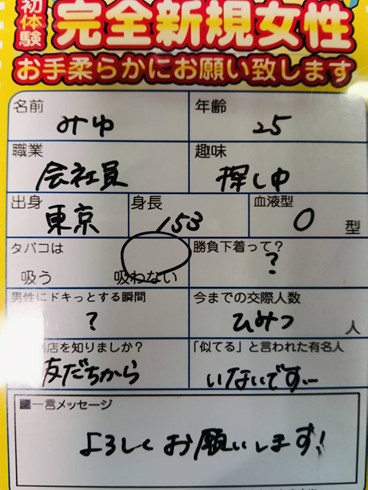 初体験
完全新規女性
お手柔らかにお願い致します
名前 みゆ
年齢 25
職業 会社員
趣味 探し中
出身 東京
身長 153
血液型 O 型
タバコは 吸う 吸わない
勝負下着って? ?
男性にドキっとする瞬間 ?
今までの交際人数 ひみつ 人
店を知りましたか? 友だちから
「似てる」と言われた有名人 いないですー
■一言メッセージ
よろしくお願いします!